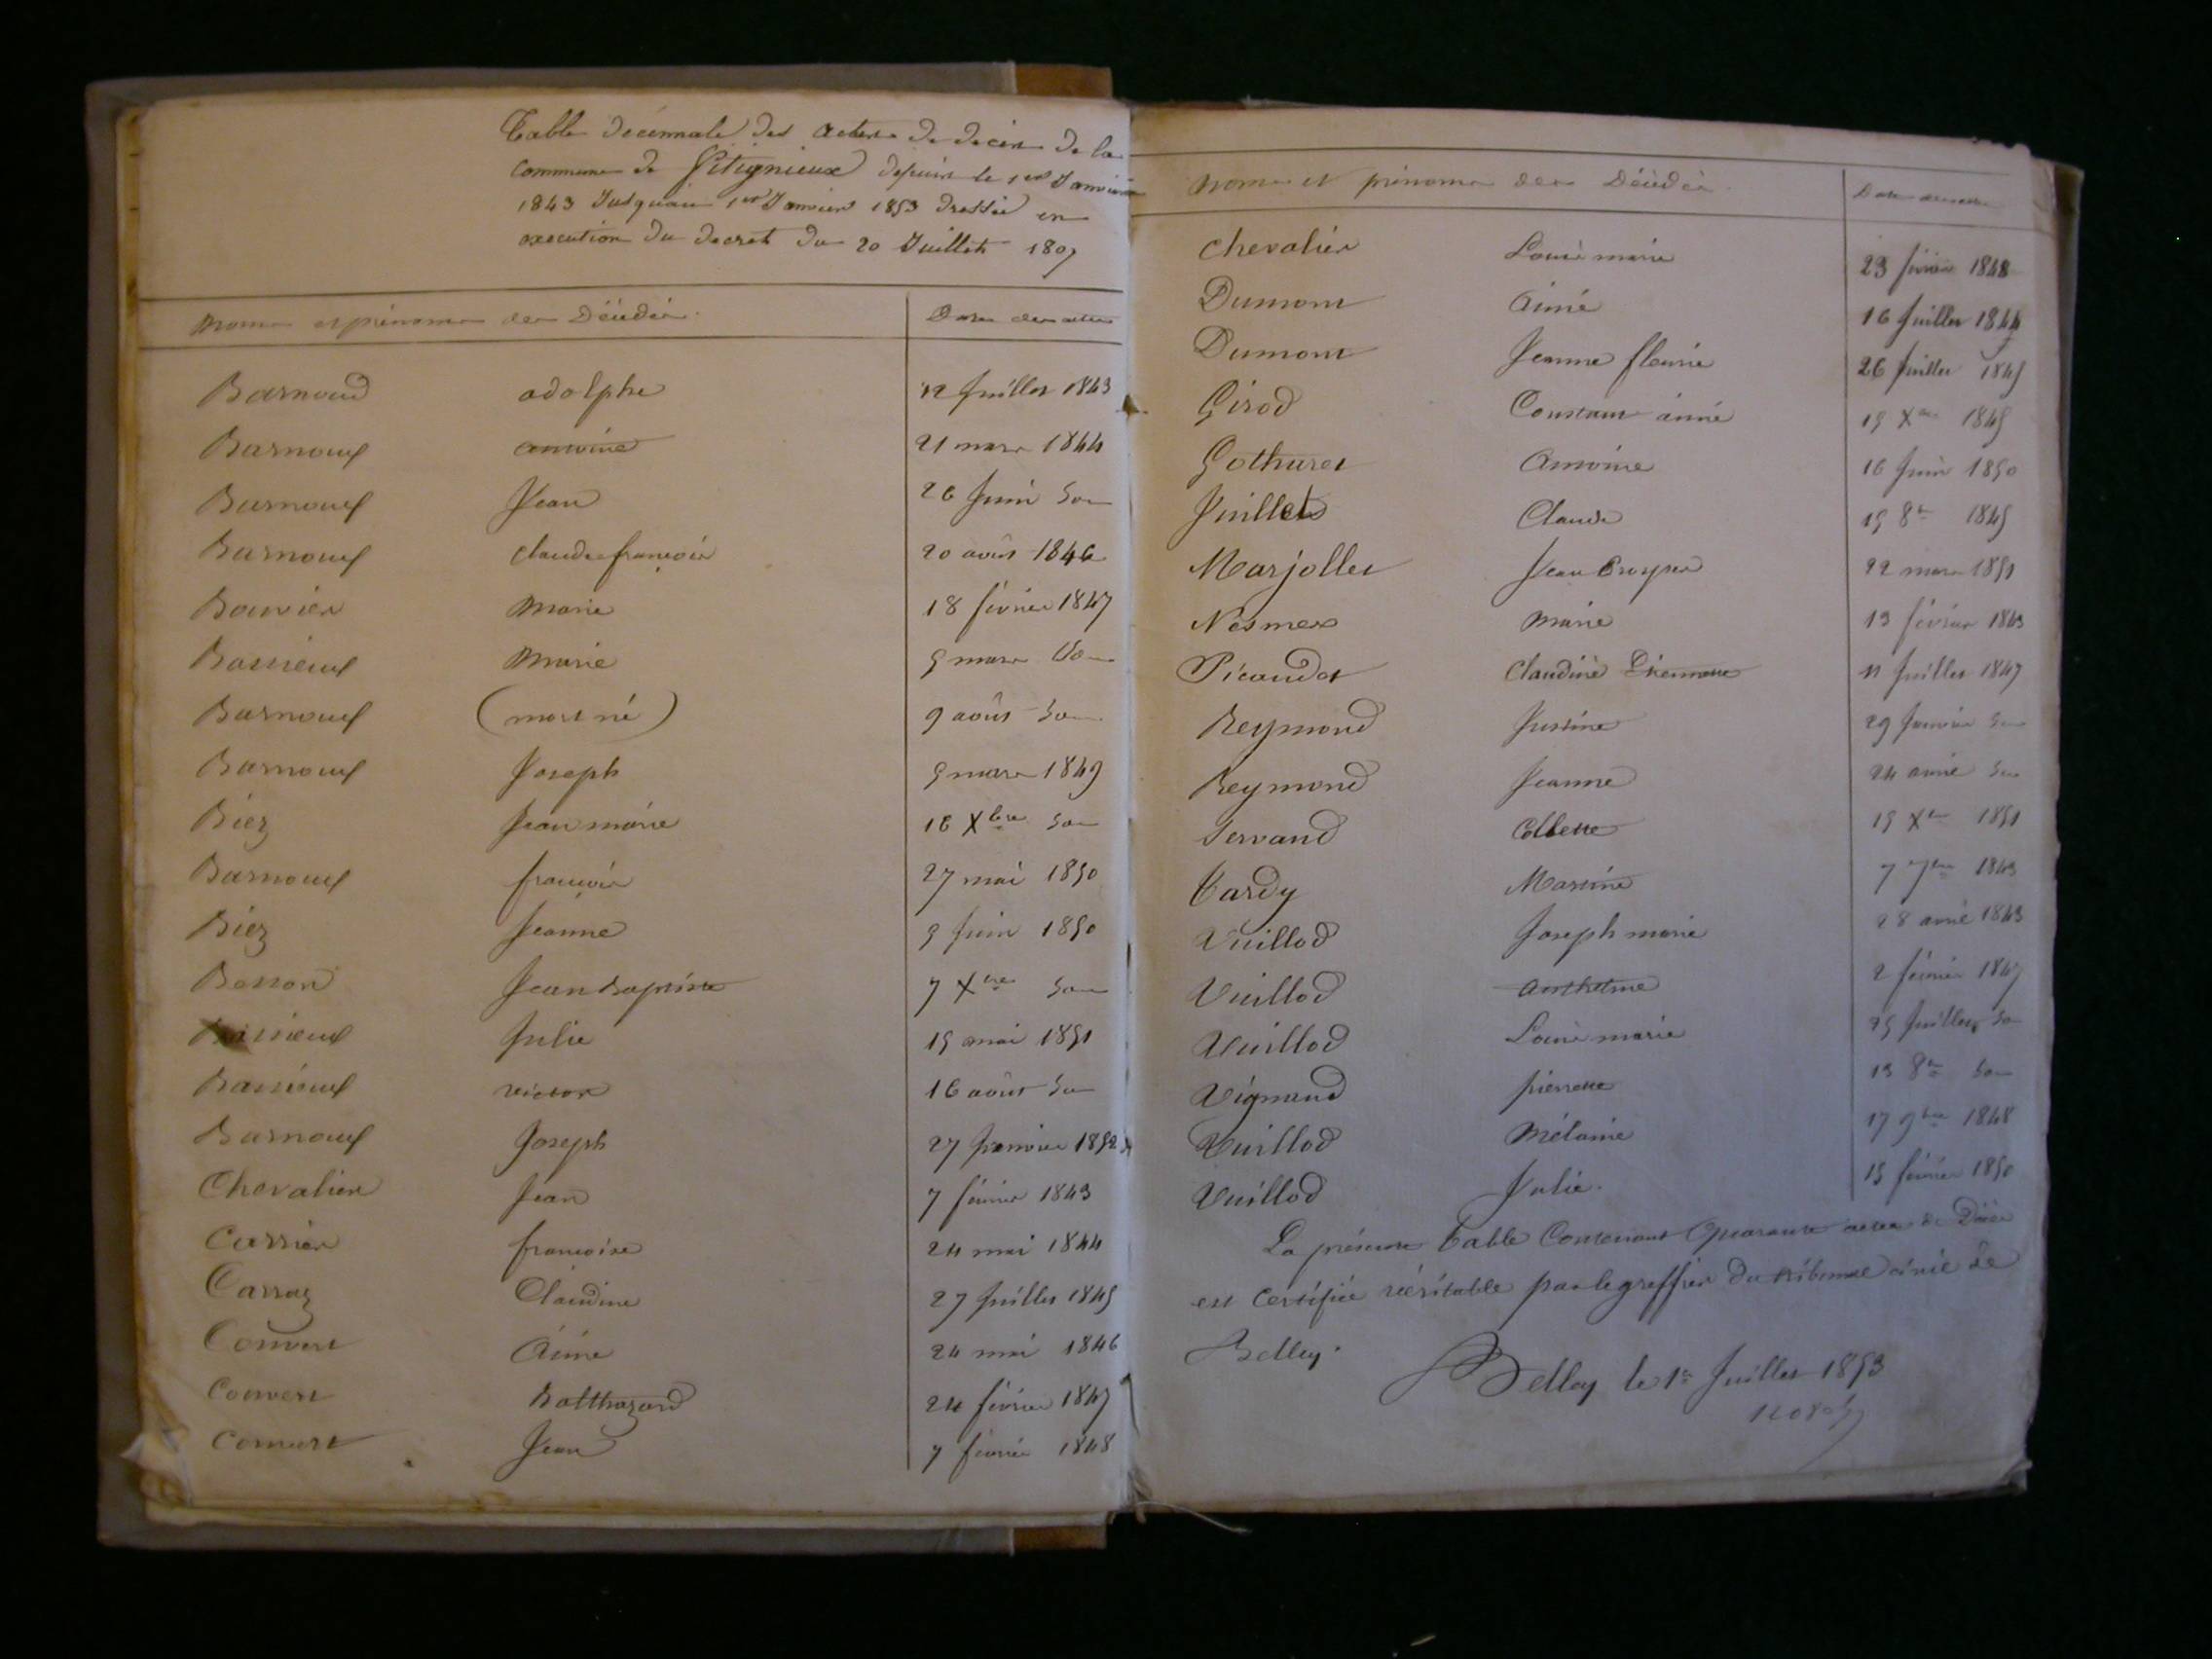 Table décennale des actes de décès de la
commune de Pitignieux depuis le 1er Janvier
1843 Jusqu'au 1er Janvier 1853 dressée en
execution du decret du 20 Juillet 1807
Noms et prénoms des Décédés. Date des actes
Barnoud adolphe 12 Juillet 1843
Barnouf antoine 21 mars 1844
Barnouf Jean 26 Juin do
Barnouf claude françois 20 août 1846
Marie 18 février 1847
Bassieuf Marie 5 mars do
Barnouf (mort né) 9 août do
Barnouf Joseph 5 mars 1849
Biez Jean marie 16 Xbre do
Barnouf françois 27 mai 1850
Biez Jeanne 3 Juin 1850
Besson Jean baptiste 7 Xbre do
Bassieuf Julie 15 mai 1851
Bassieuf victor 16 août do
Barnouf Joseph 27 Janvier 1852
Chevalier Jean 7 février 1843
Carrier françoise 24 mai 1844
Carraz Claudine 27 Juillet 1845
Convert Aimé 24 mai 1846
Convert Balthazard 24 février 1847
Convert Jean 7 février 1848
Noms et prénoms des Décédés. Date des actes
Chevalier Louis marie 23 février 1848
Dumont Aimé 16 Juillet 1844
Dumont Jeanne fleurie 26 Juillet 1845
Girod Constant aimé 15 Xbre 1845
Gothuret Antoine 16 Juin 1850
Juillet Claude 15 8bre 1845
Marjollet Jean Prosper 22 mars 1851
Nesmes Marie 13 février 1843
Picaudet Claudine Etiennette 11 Juillet 1847
Reymond Justine 29 Janvier do
Reymond Jeanne 24 avril do
Servand Collette 15 Xbre 1851
Tardy Martine 7 7bre 1843
Vuillod Joseph marie 28 avril 1843
Vuillod anthelme 2 février 1847
Vuillod Louis marie 25 Juillet do
Vignand pierrette 13 8bre do
Vuillod Mélanie 17 9bre 1848
Vuillod Julie. 15 février 1850
La présente table Contenant Quarante actes de Décès
est Certifiée véritable par le greffier du tribunal civil de
Belley.
Belley le 1er Juillet 1853